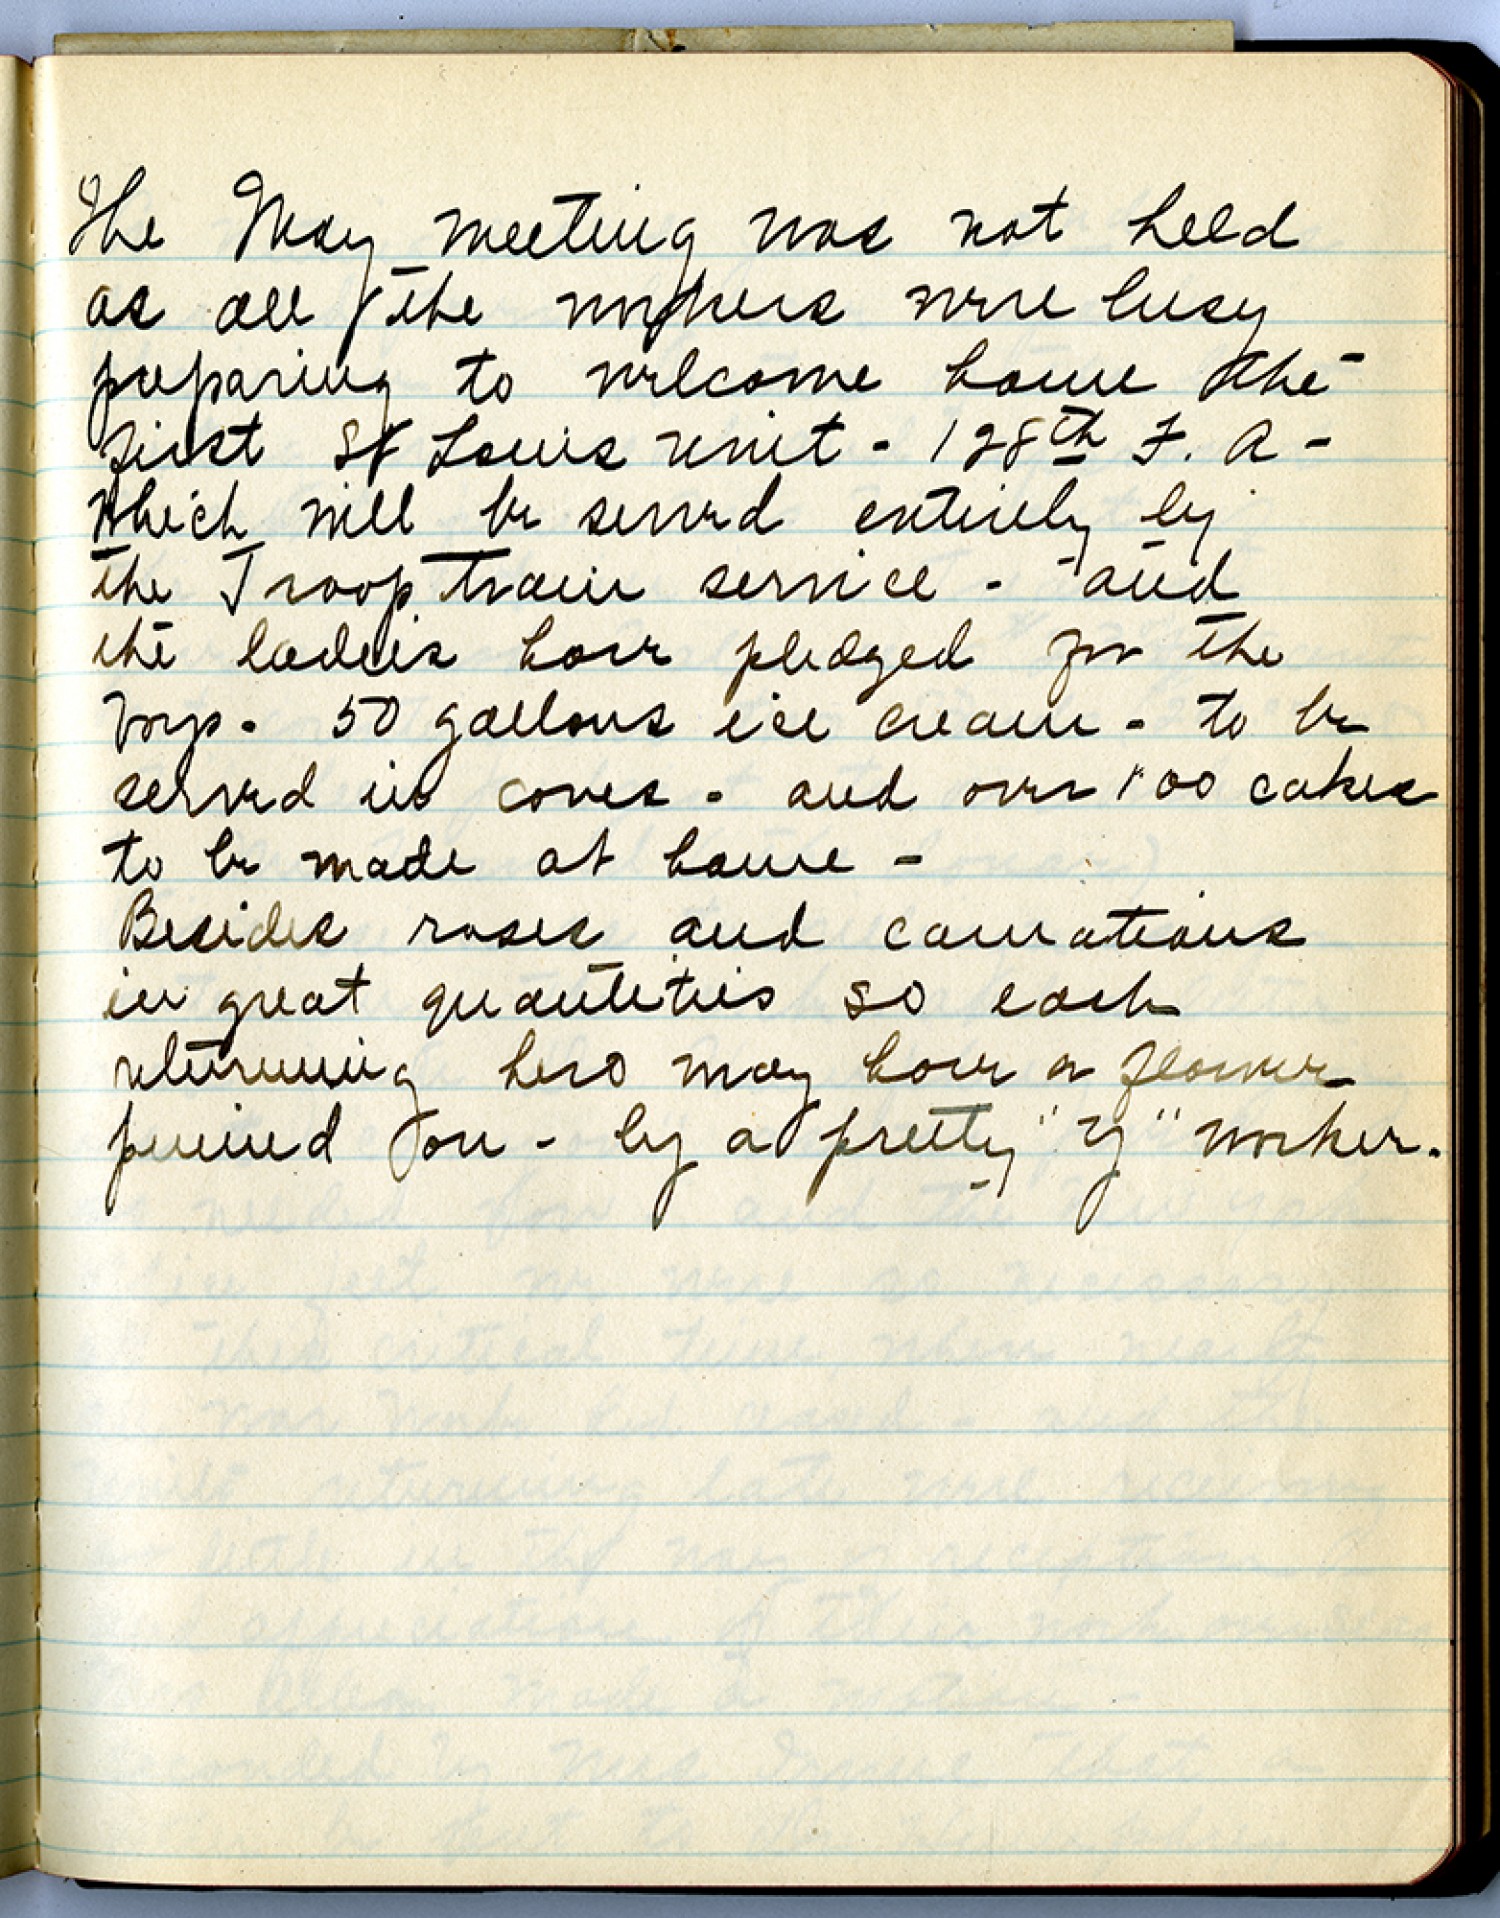 The May meeting was not held
as all the workers were busy
preparing to welcome home the
first St Louis unit - 128th F. A -
Which will be served entirely by
the Troop Train service - and
the ladies have pledged for the
boys - 50 gallons ice cream - to be
served in cones - and over 100 cakes
to be made at home -
Besides roses and carnations
in great quantities so each
returning hero may have a flower
pinned on - by a pretty "Y" worker.